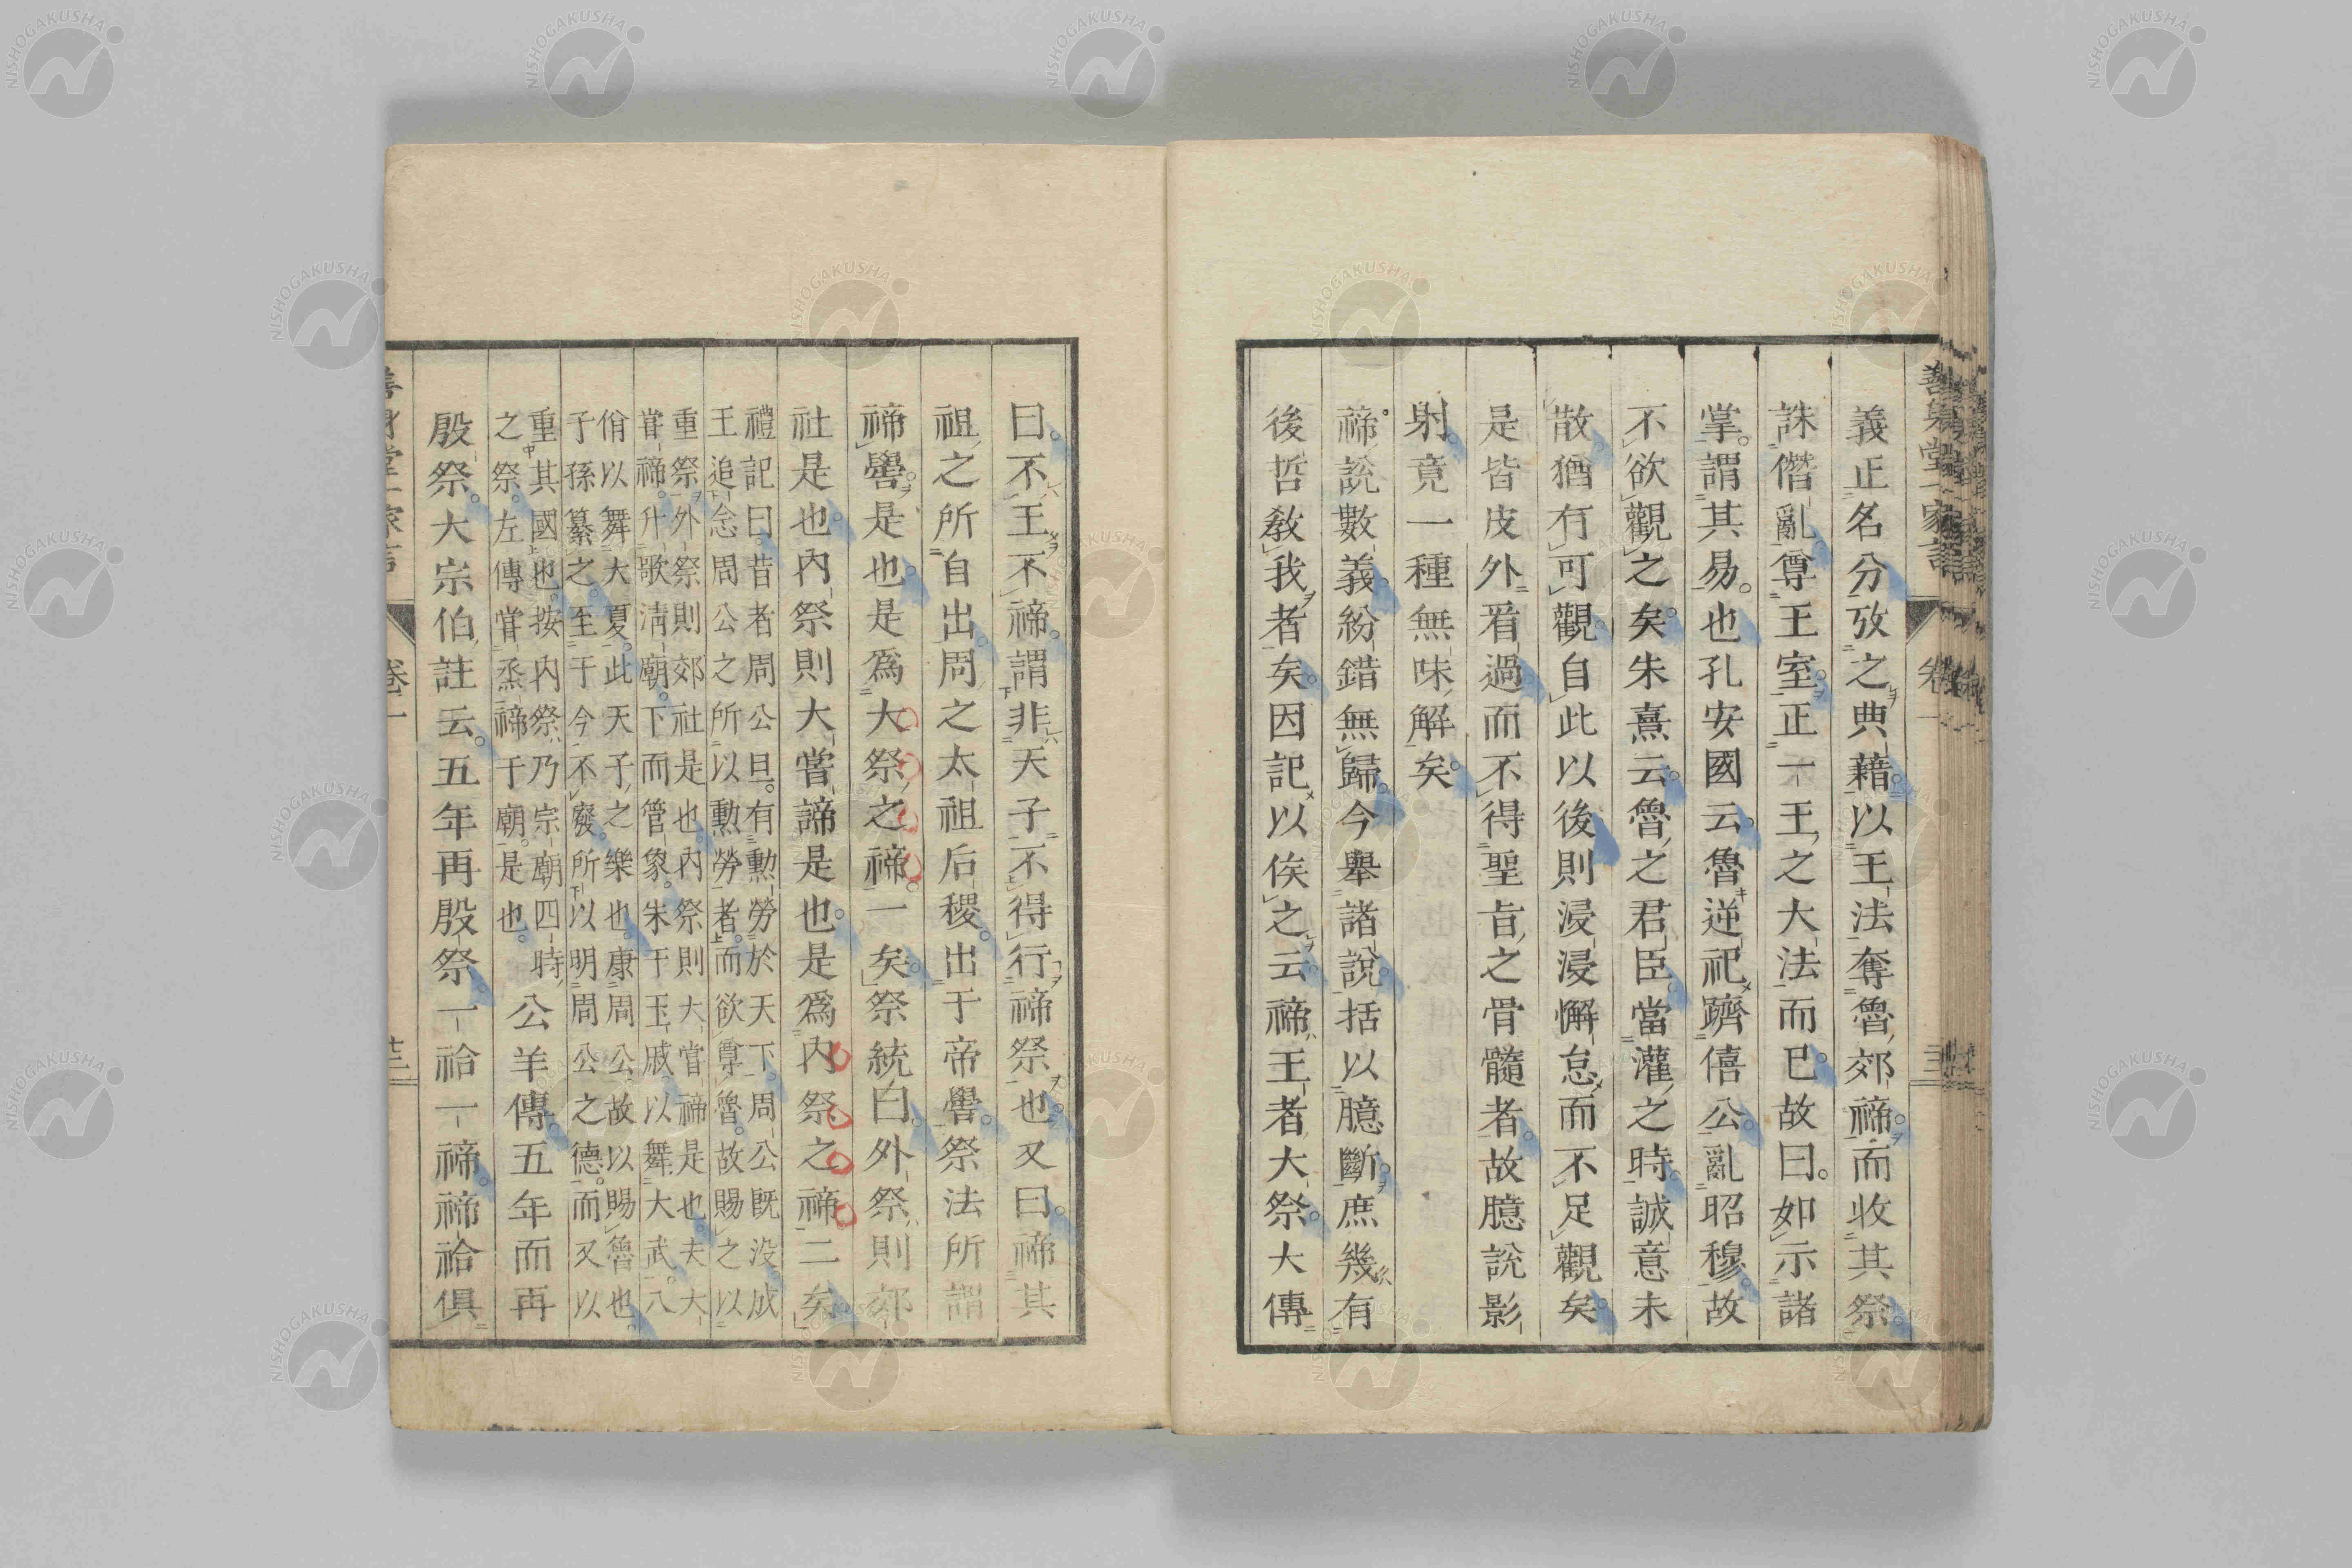 義正名分攷之典藉以王法奪魯郊禘而收其祭
誅僭亂尊王室正一王之大法而已故曰如示諸
掌謂其易也孔安國云魯逆祀躋僖公亂昭穆故
不欲觀之矣朱熹云魯之君臣當灌之時誠意未
散猶有可觀自此以後則浸浸懈怠而不足觀矣
是皆皮外看過而不得聖旨之骨髓者故臆說影
射竟一種無味解矣
禘說數義紛錯無歸今舉諸說括以臆斷庶幾有
後哲教我者矣因記以俟之云禘王者大祭大傳
曰不王不禘謂非天子不得行禘祭也又曰禘其
祖之所自出周之太祖后稷出于帝嚳祭法所謂
禘嚳是也是爲大祭之禘一矣祭統曰外祭則郊
社是也內祭則大嘗諦是也是爲內祭之禘二矣
禮記曰昔者周公旦有勳勞於天下周公既沒成
王追念周公之所以勳勞者而欲尊魯故賜之以
重祭外祭則郊社是也內祭則大嘗禘是也夫大
嘗禘升歌淸廟下而管象朱干玉戚以舞大武八
佾以舞大夏此天子之樂也康周公故以賜魯也
子孫纂之至于今不廢所以明周公之德而又以
重其國也按内祭乃宗廟四時
之祭左傳嘗烝禘于廟是也
公羊傳五年而再
殷祭大宗伯註云五年再殷祭一祫一禘禘祫俱
卷一